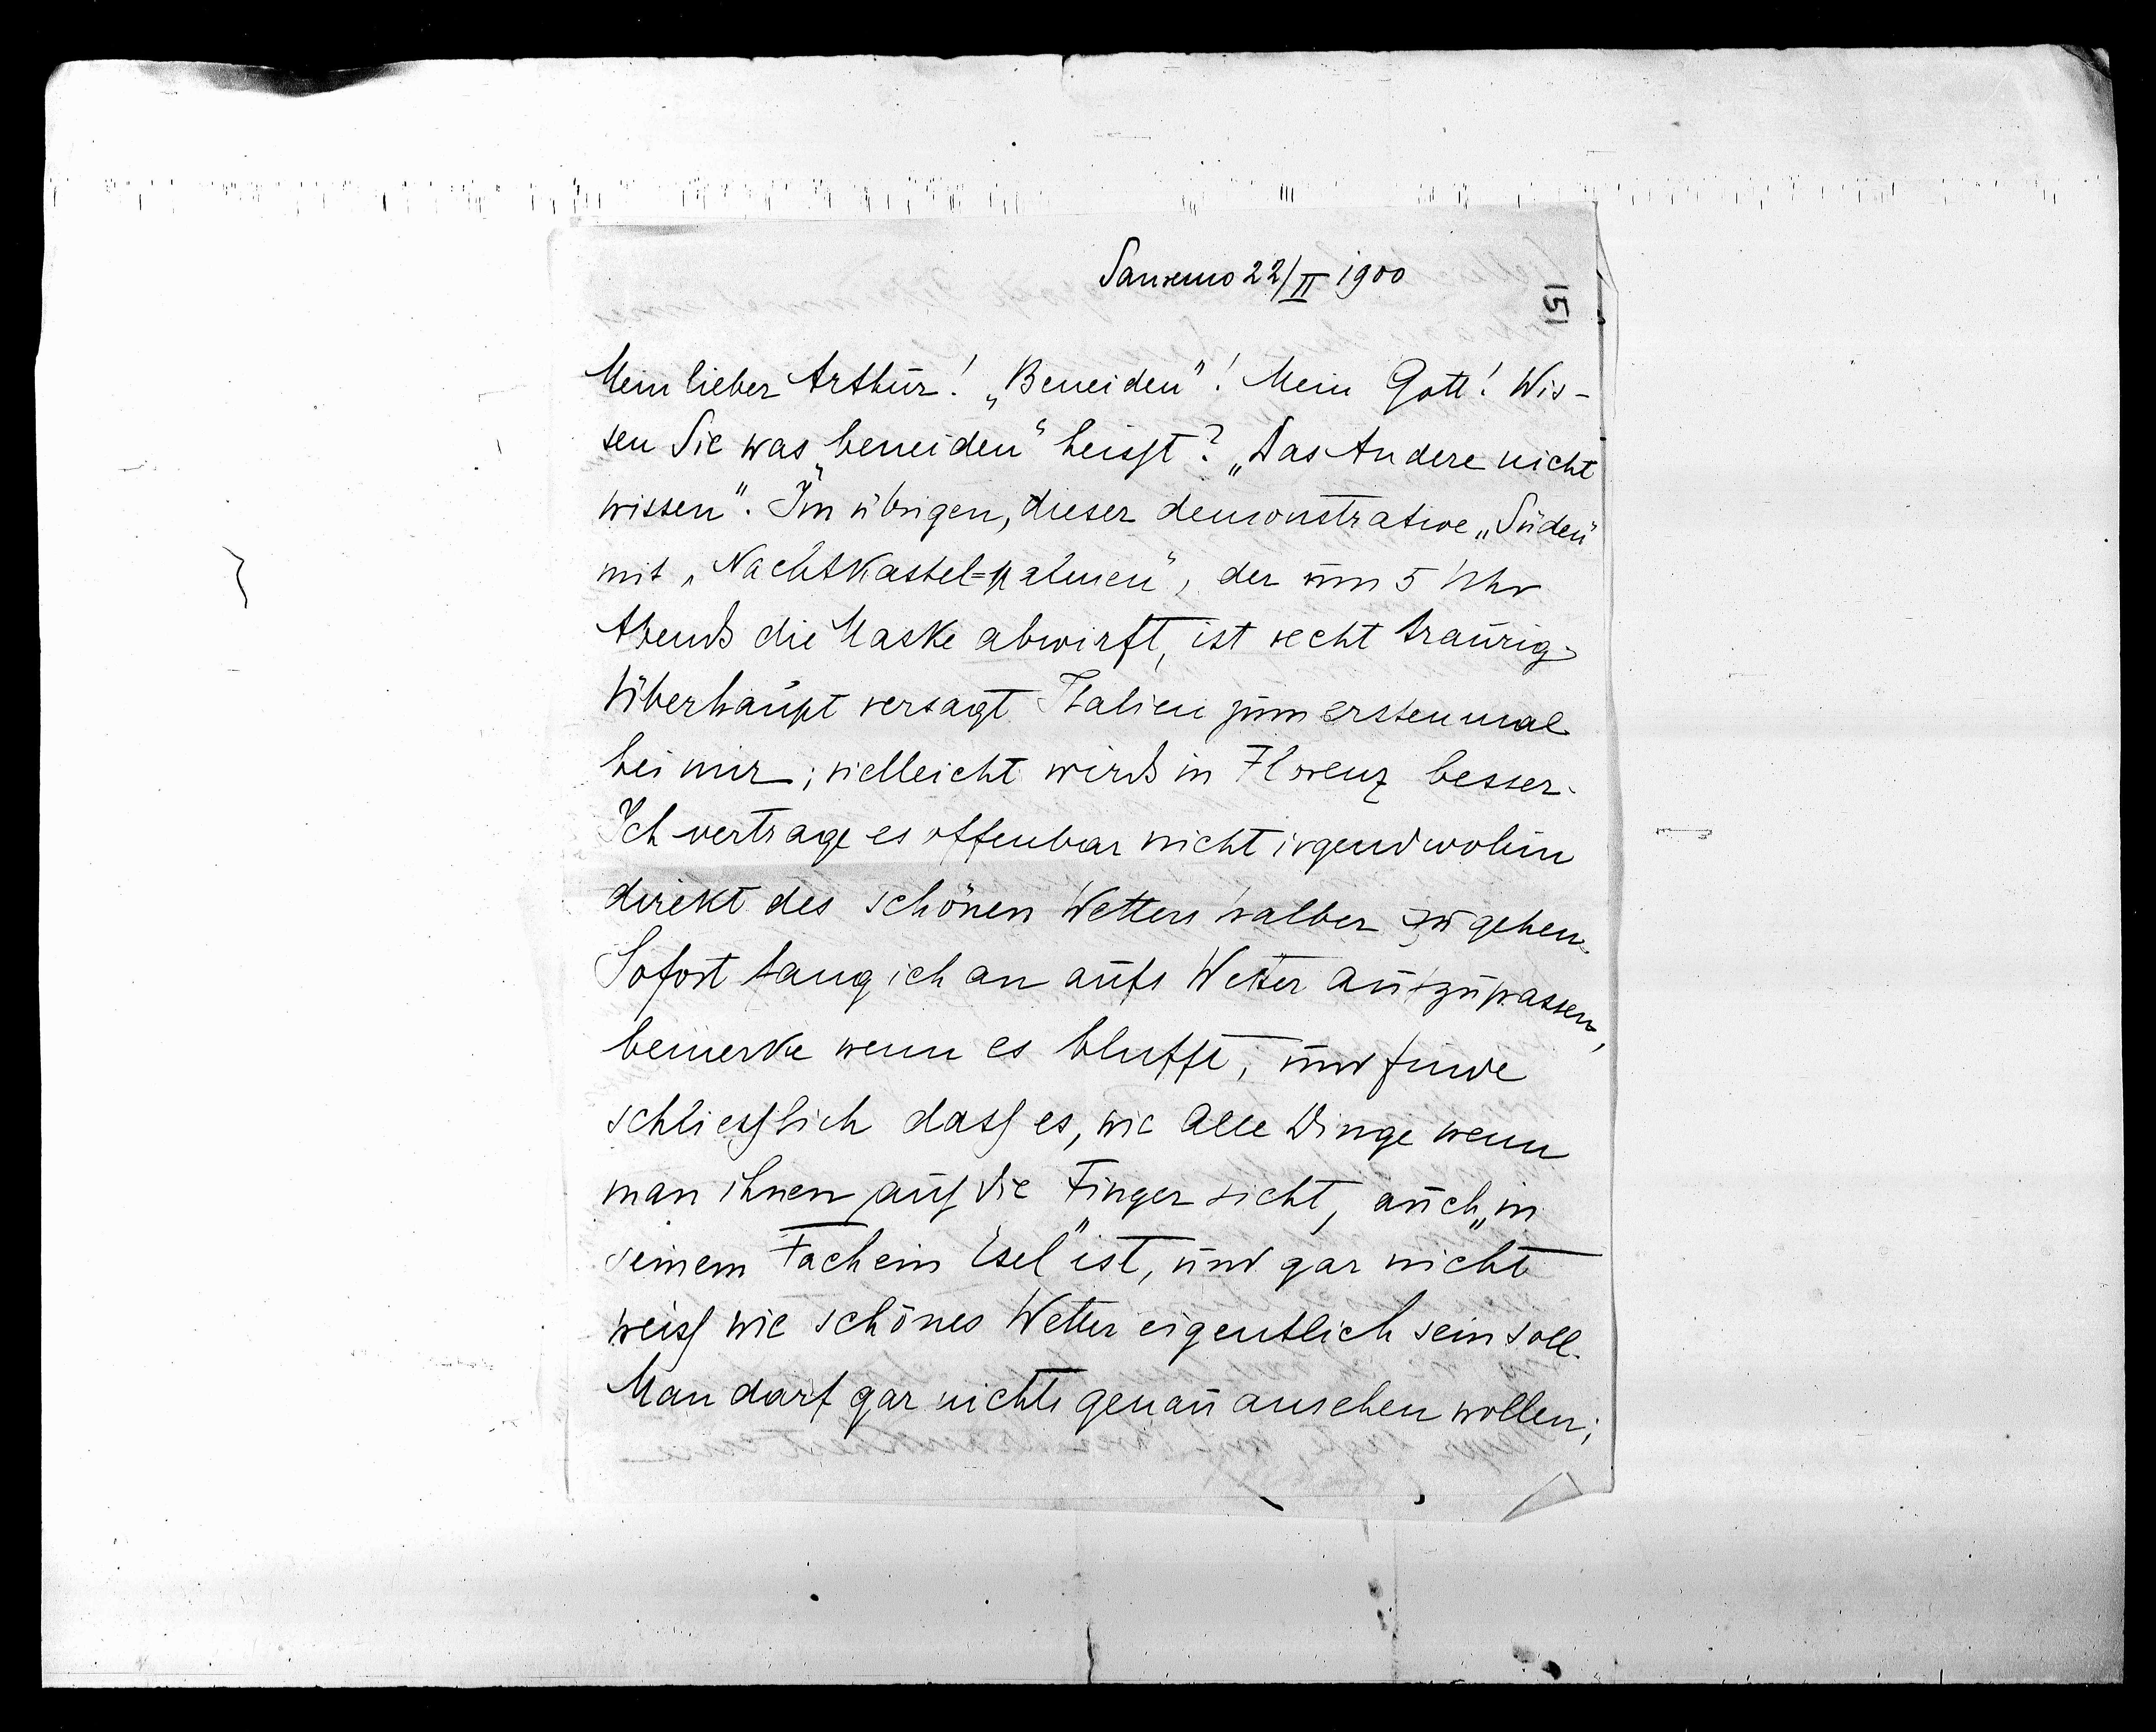 Sanremo 22/II 1900
151
Mein lieber Arthur! „Beneiden"! Mein Gott! Wis-
sen Sie was „beneiden" heisst? „Das Andere nicht
wissen". Im übrigen, dieser demonstrative „Süden"
mit „Nachtkastel=palmen", der um 5 Uhr
Abends die Maske abwirft, ist recht traurig.
Überhaupt versagt Italien zum erstenmal
bei mir; vielleicht wirds in Florenz besser.
Ich vertrage es offenbar nicht irgendwohin
direkt des schönen Wetters halber zu gehen.
Sofort fang ich an aufs Wetter aufzupassen,
bemerke wenn es blufft, und finde
schliesslich dass es, wie alle Dinge wenn
man ihnen auf die Finger sieht, auch „in
seinem Fach ein Esel" ist, und gar nicht
weiss wie schönes Wetter eigentlich sein soll.
Man darf gar nichts genau ansehen wollen;